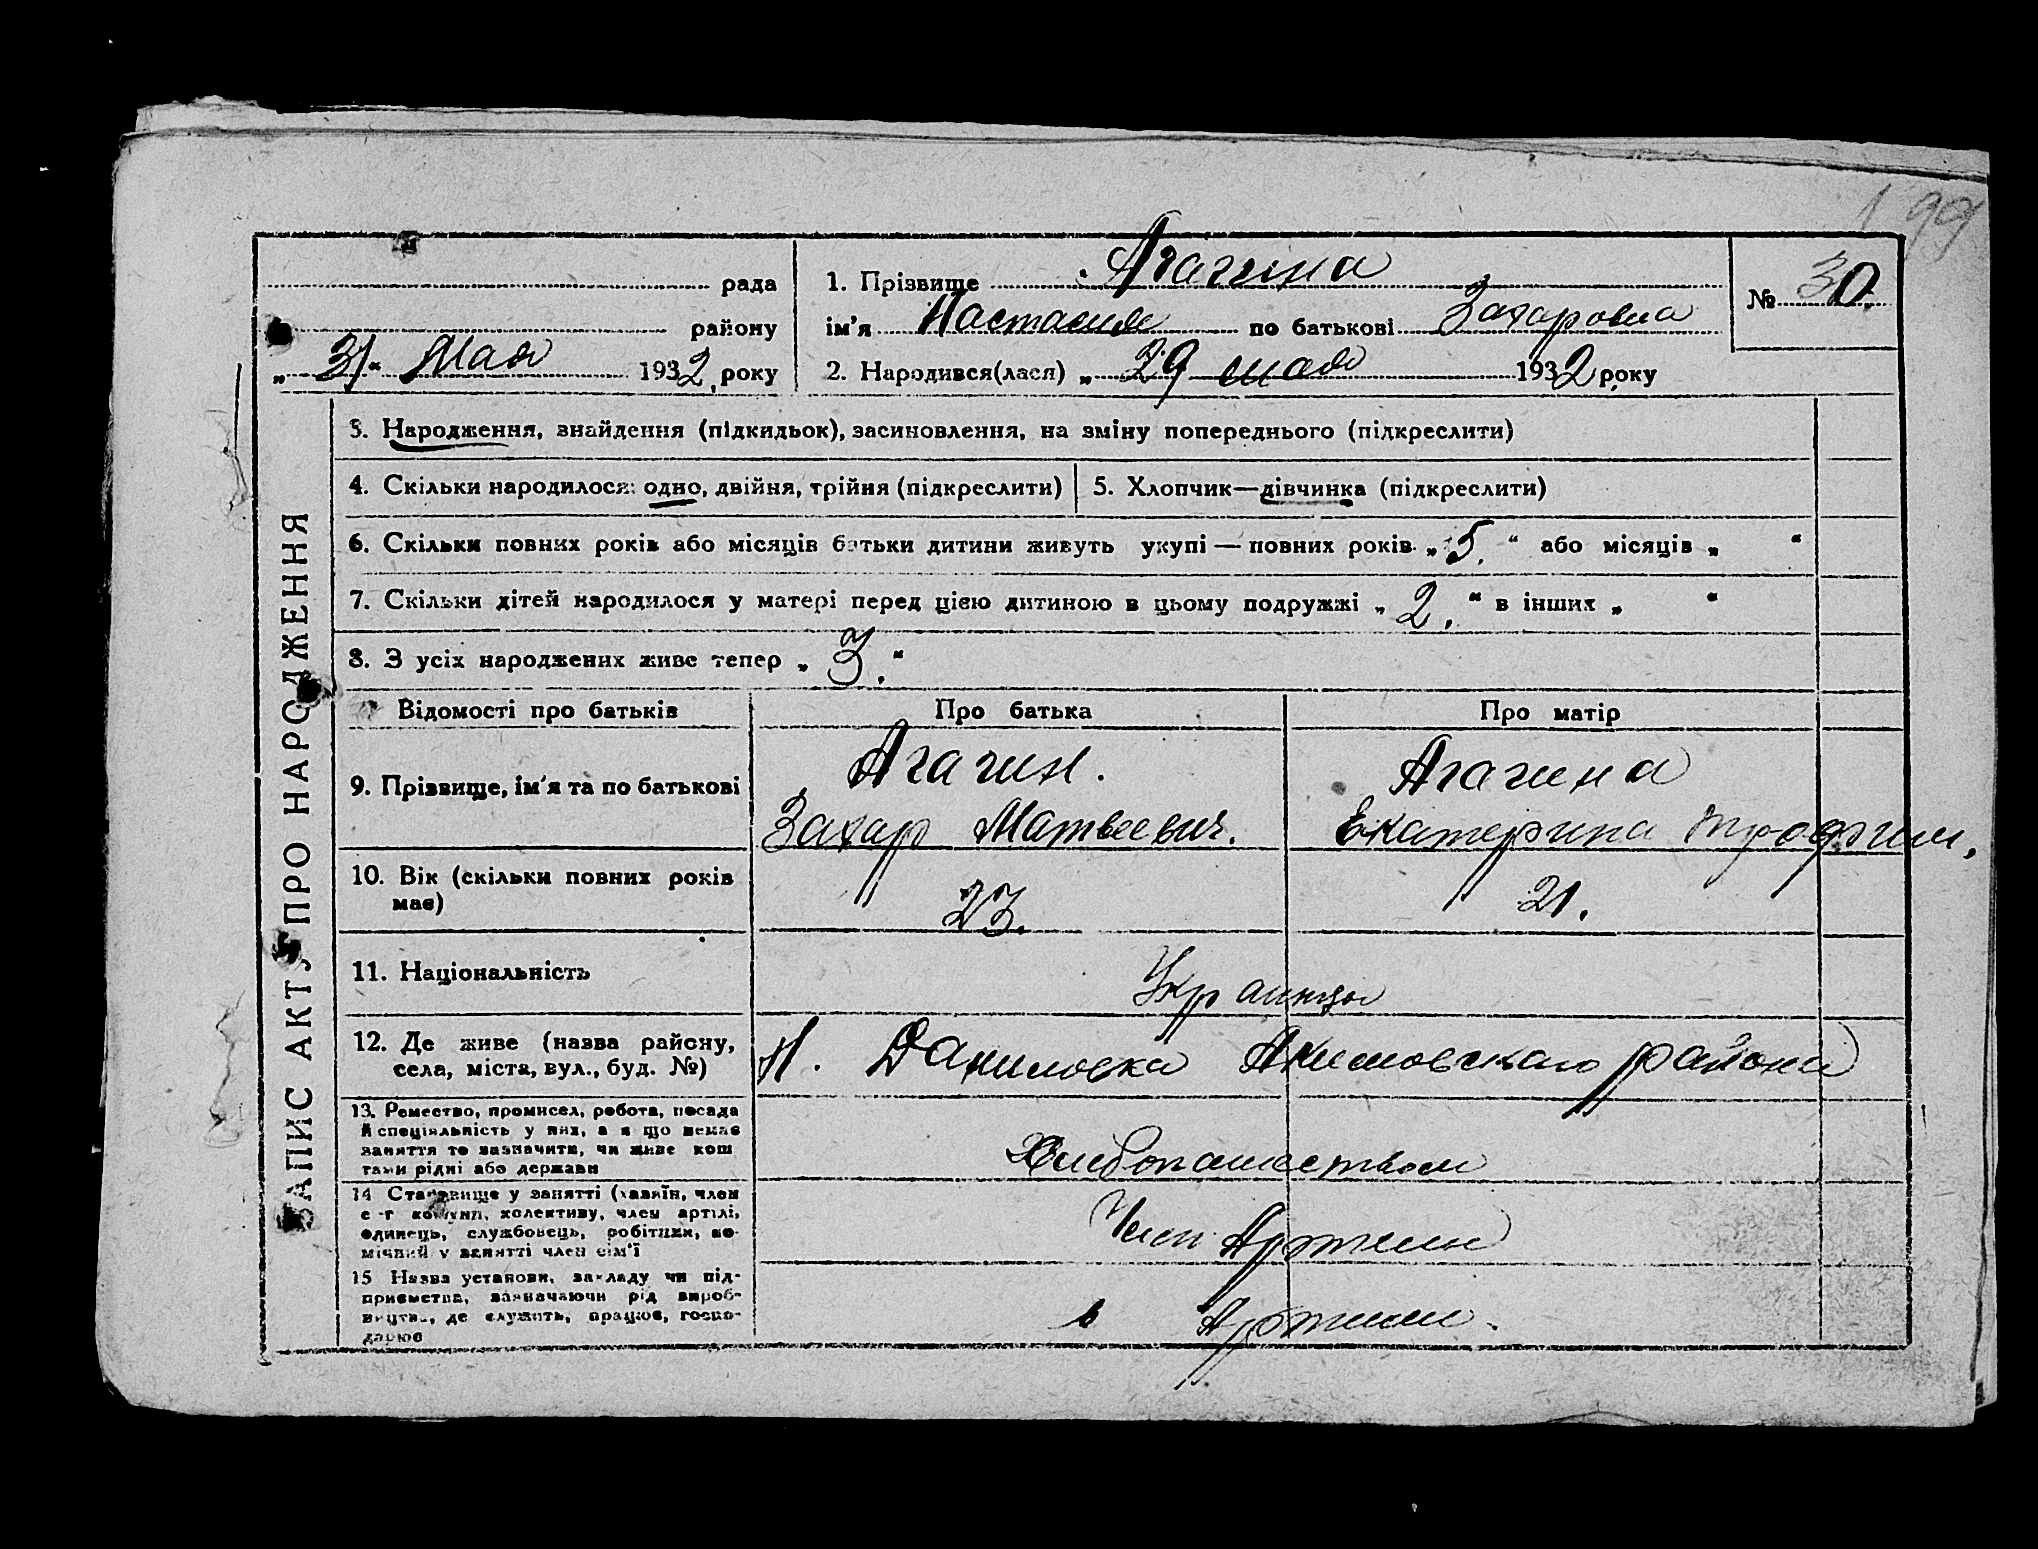 199
рада
району
„31“ Мая 1932 року
1. Прізвище Агагина
ім'я Настасия по батькові Захаровна
2. Народився(лася) „29 мая 1932 року
№ 30
ЗАПИС АКТУ ПРО НАРОДЖЕННЯ
3. Народження, знайдення (підкидьок), засиновлення, на зміну попереднього (підкреслити)
4. Скільки народилося: одно, двійня, трійня (підкреслити)
5. Хлопчик—дівчинка (підкреслити)
6. Скільки повних років або місяців батьки дитини живуть укупі — повних років „5.“ або місяців „ “
7. Скільки дітей народилося у матері перед цією дитиною в цьому подружжі „2.“ в інших „ “
8. З усіх народжених живе тепер „3.“
Відомості про батьків
Про батька
Про матір
9. Прізвище, ім'я та по батькові
Агагин.
Захар Матвеевич.
Агагина
Екатерина Трофим.
10. Вік (скільки повних років
має)
23.
21.
11. Національність
Украинцы
12. Де живе (назва району,
села, міста, вул., буд. №)
Н. Даниловка Акимовского района
13. Ремество, промисел, робота, посада
й спеціяльність у них, а як що немає
заняття то зазначити, чи живе кош
тами рідні або держави
Хлебопашеством
14 Становище у занятті (хазяїн, член
с-г комуни, колективу, член артілі,
одинець, службовець, робітник, по-
мічний у занятті член сім'ї
Член Артели
15 Назва установи, закладу чи під-
приємства, зазначаючи рід вироб-
ництва, де служить, працює, госпо-
дарює
в Артели.